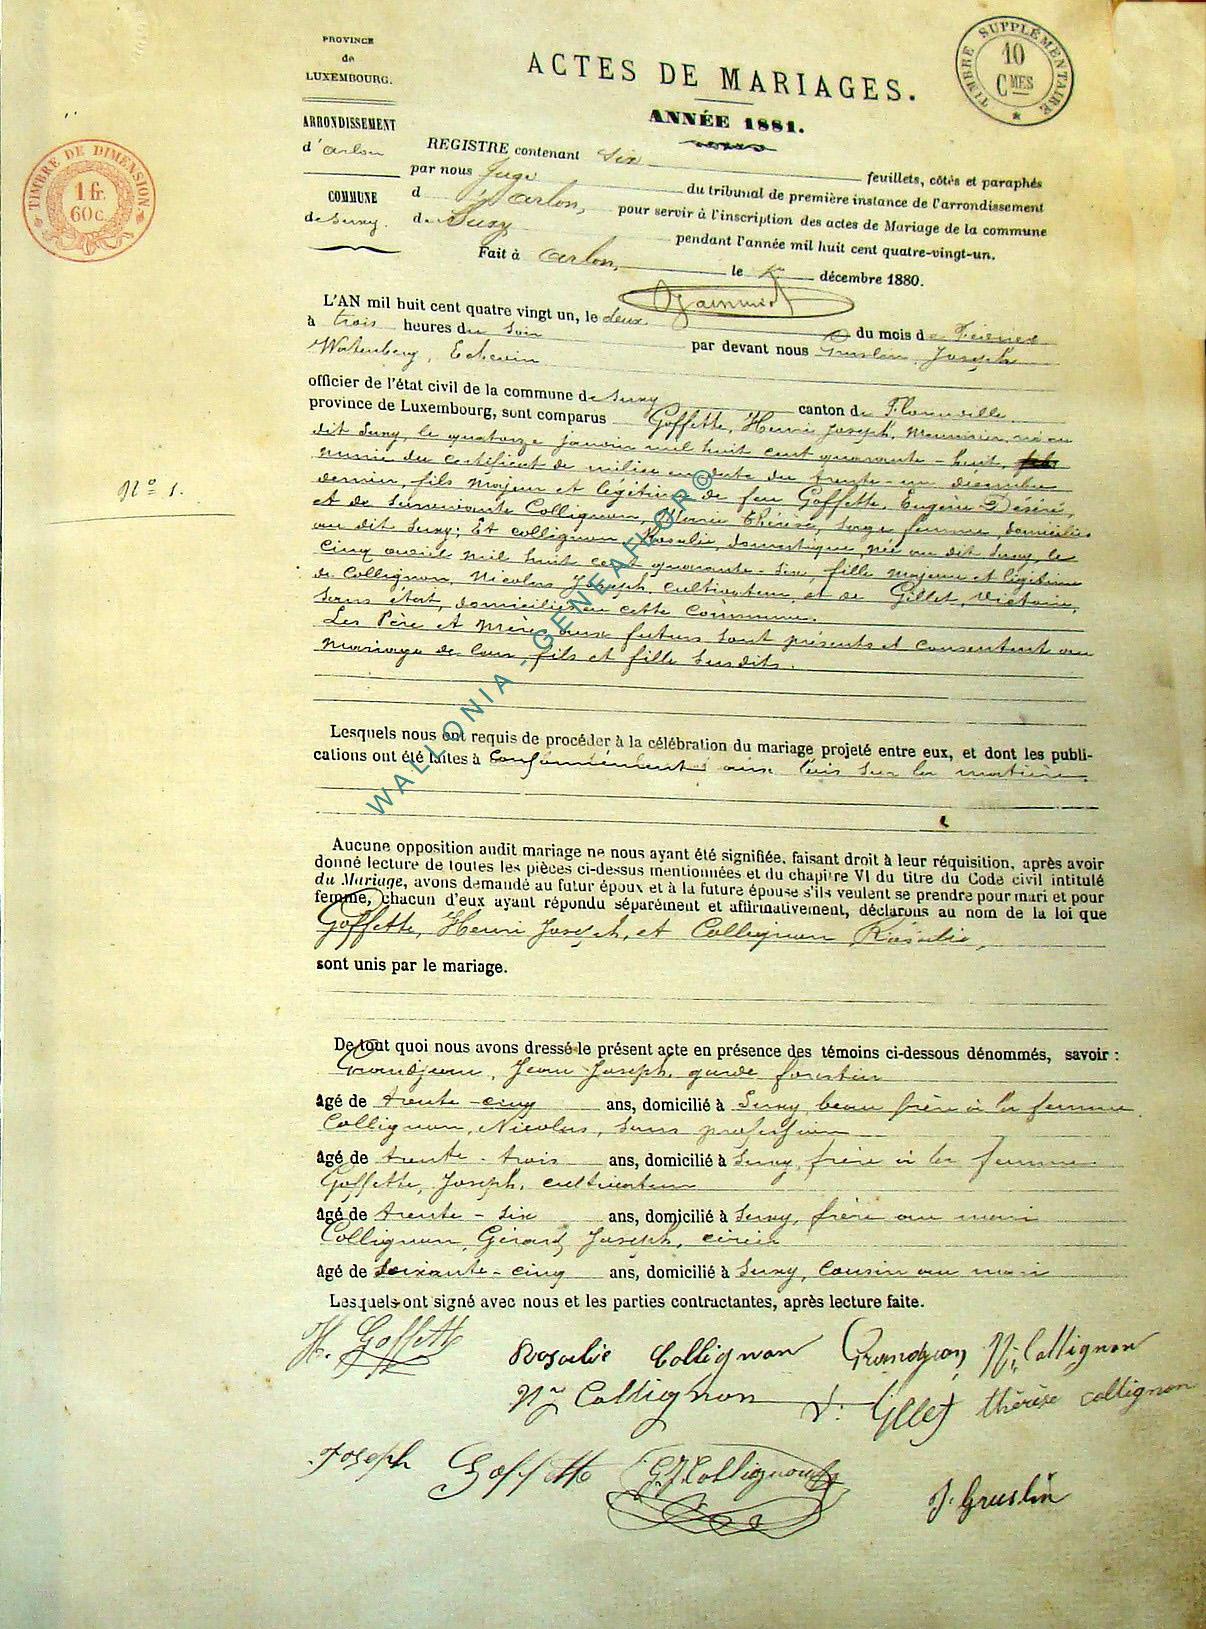 PROVINCE
de
LUXEMBOURG.
ARRONDISSEMENT
d'Arlon
COMMUNE
de Suxy.
TIMBRE DE DIMENSION
1 fr.
60 c.
TIMBRE SUPPLÉMENTAIRE
10
CMES
ACTES DE MARIAGES.
ANNÉE 1881.
REGISTRE contenant Six feuillets, côtés et paraphés
par nous Juge du tribunal de première instance de l'arrondissement
d'Arlon, pour servir à l'inscription des actes de Mariage de la commune
de Suxy pendant l'année mil huit cent quatre-vingt-un.
Fait à Arlon, le décembre 1880.
N° 1.
L'AN mil huit cent quatre vingt un, le deux du mois de Février
à trois heures du Soir par devant nous Gruslin, Joseph
Echevin
officier de l'état civil de la commune de Suxy canton de Florenville
province de Luxembourg, sont comparus Goffette, Henri Joseph, Meunier, né au
dit Suxy, le quatorze janvier mil huit cent quarante-huit,
muni du certificat de milice en date du trente-un décembre
dernier, fils majeur et légitime de feu Goffette, Eugène Désiré,
et de Survivante Collignon, Marie Thérèse, Sage femme, domiciliés
au dit Suxy; Et Collignon Rosalie, domestique, née au dit Suxy, le
cinq avril mil huit cent quarante-six, fille majeure et légitime
de Collignon, Nicolas Joseph, cultivateur, et de Gillet, Victoire,
sans état, domiciliés en cette commune.
Les Père et Mères aux futurs sont présents et consentent au
mariage de leur fils et fille susdits.
Lesquels nous ont requis de procéder à la célébration du mariage projeté entre eux, et dont les publi-
cations ont été faites à conformément aux lois sur la matière
Aucune opposition audit mariage ne nous ayant été signifiée, faisant droit à leur réquisition, après avoir
donné lecture de toutes les pièces ci-dessus mentionnées et du chapitre VI du titre du Code civil intitulé
du Mariage, avons demandé au futur époux et à la future épouse s'ils veulent se prendre pour mari et pour
femme, chacun d'eux ayant répondu séparément et affirmativement, déclarons au nom de la loi que
Goffette, Henri Joseph, et Collignon Rosalie,
sont unis par le mariage.
De tout quoi nous avons dressé le présent acte en présence des témoins ci-dessous dénommés, savoir :
Grandjean, Jean Joseph, garde forestier
âgé de trente-cinq ans, domicilié à Suxy, beau frère à la femme
Collignon, Nicolas, sans profession
âgé de trente-trois ans, domicilié à Suxy, frère à la femme
Goffette, Joseph, cultivateur
âgé de trente-six ans, domicilié à Suxy, frère au mari
Collignon, Gérard Joseph,
âgé de soixante-cinq ans, domicilié à Suxy, Cousin au mari
Lesquels ont signé avec nous et les parties contractantes, après lecture faite.
H. Goffette Rosalie Collignon Grandjean N. Collignon
Collignon V: Gillet thérèse collignon
Joseph Goffette G.J. Collignon J. Gruslin
WALLONIA - GENEAFLOR©